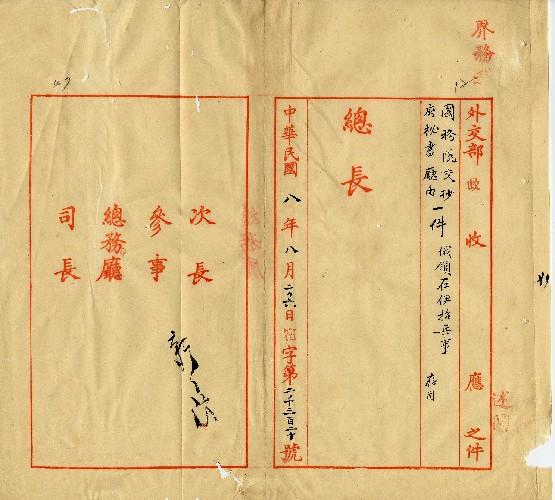 界務
外交部 收 收 應 之件
國務院交抄
府秘書廳函 一件 俄領在伊招兵事 存
總長
中華民國 八年 八月 二十六日 字第 二千三百二十 號
次長
參事
總務廳
司長